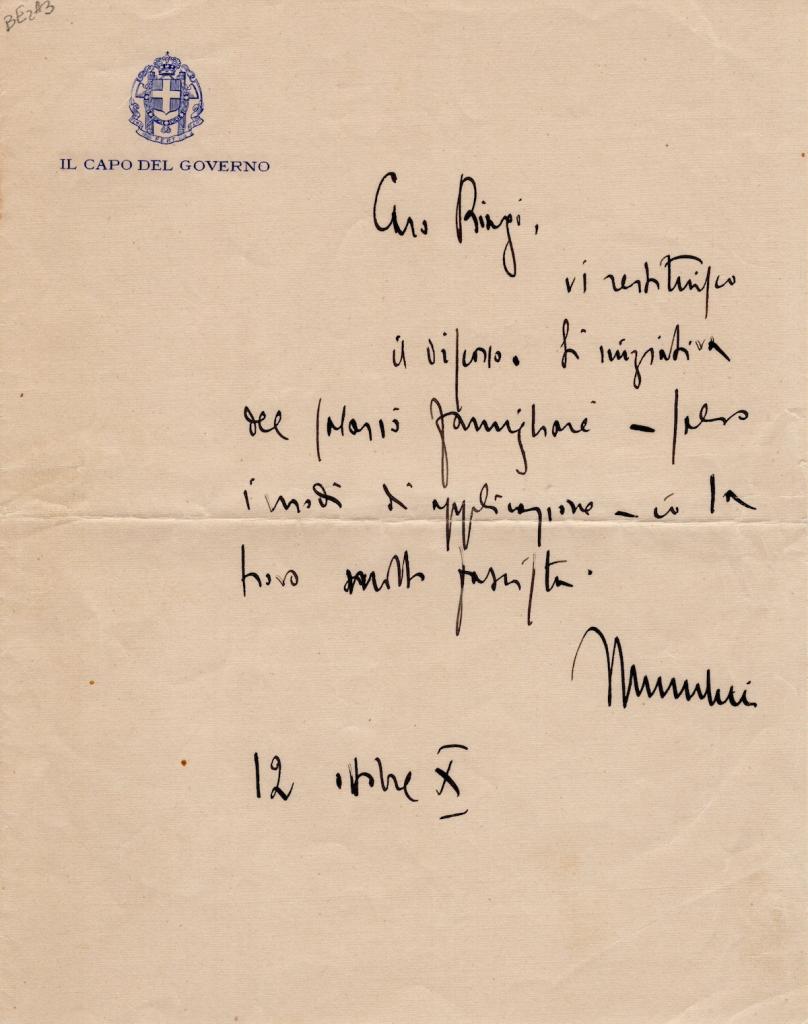 BE2A3
IL CAPO DEL GOVERNO
Caro Biagi,
vi restituisco
il discorso. L'iniziativa
del salario famigliare – salvo
i modi di applicazione – io la
trovo molto fascista.
Mussolini
12 ottobre X